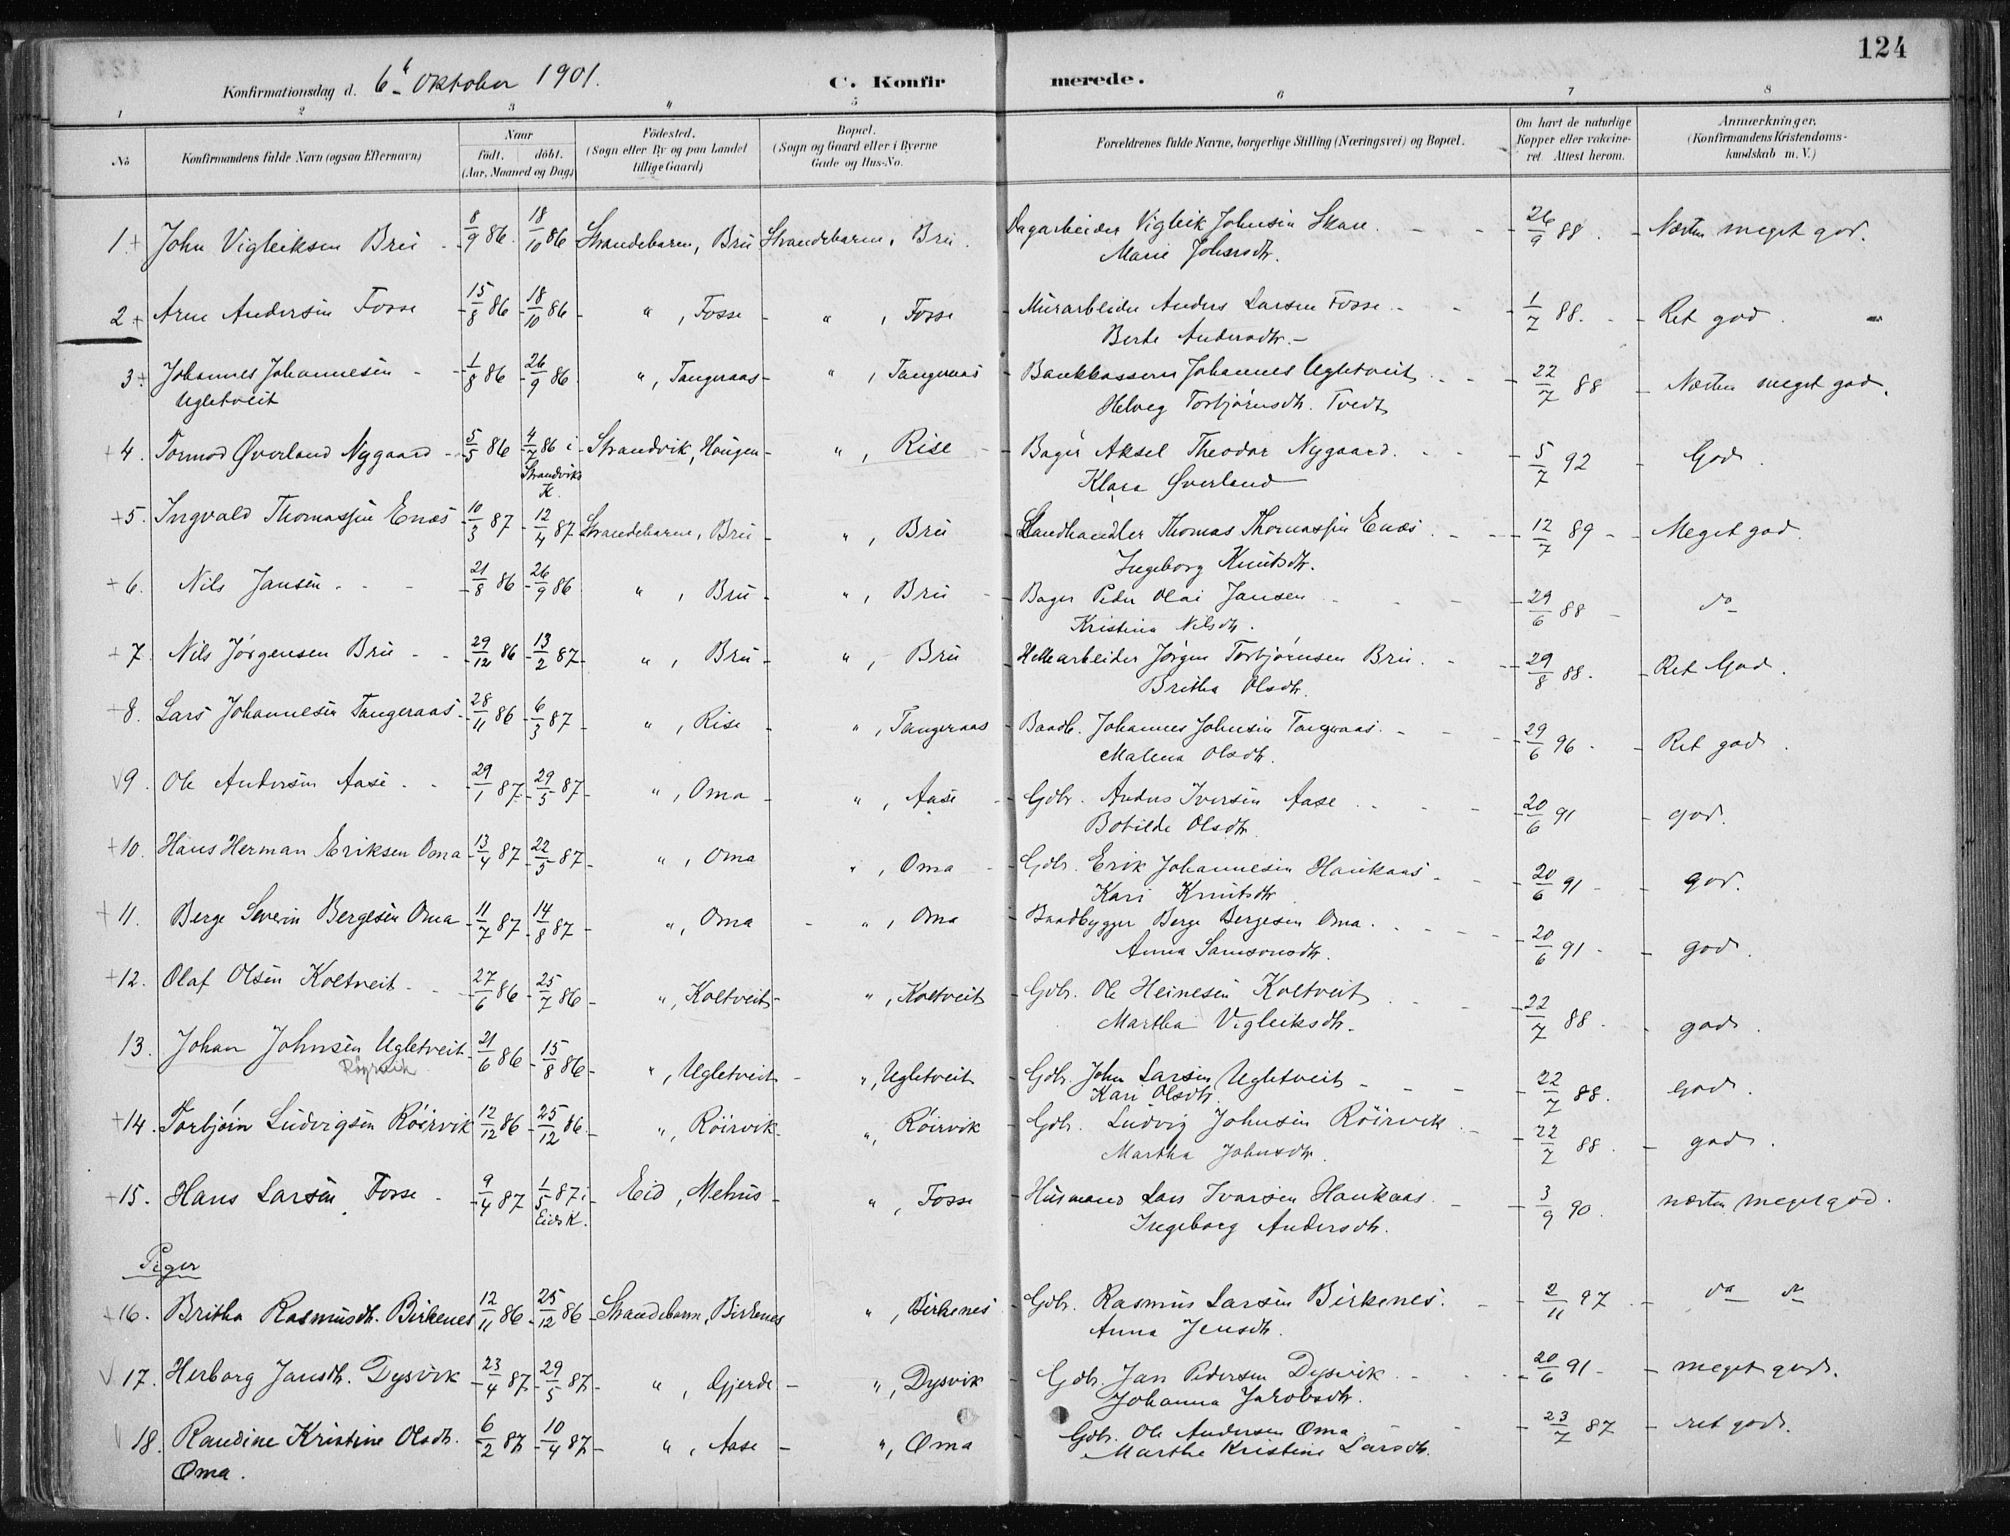 124
Konfirmationsdag d. 6te Oktober 1901.
C. Konfirmerede.
1 2 3 " 5 6 7 8
No
Konfirmandens fulde Navn (ogsaa Efternavn)
Naar
födt. döbt.
(Aar, Maaned og Dag)
Födested.
(Sogn eller By og paa Landet
tillige Gaard)
Bopæl.
(Sogn og Gaard eller i Byerne
Gade og Hus-No.
Forældrenes fulde Navne, borgerlige Stilling (Næringsvei) og Bopæl.
Om havt de naturlige
Kopper eller vakcine-
ret Attest herom.
Anmærkninger.
(Konfirmandens Kristendoms-
kundskab m. V.)
1 + John Vigleiksen Bru 8/9 86 18/10 86 Strandebarm, Bru Strandebarm, Bru Dagarbeider Vigleik Johnsen Skaar 26/9 88 Næsten meget god.
Marie Johansdtr.
2 + Arne Andersen Fosse 15/8 86 18/10 86 " , Fosse " , Fosse Murarbeider Anders Larsen Fosse 1/7 88. Ret god.
Berte Andersdtr.
3 + Johannes Johannesen 1/8 86 26/9 86 " , Tangeraas " , Tangeraas Bankkasserer Johannes Ugletveit 22/7 88 Næsten meget god.
Ugletveit Helveg Torbjørnsdtr. Tvedt
+ 4. Tormod Øverland Nygaard 5/5 86 4/7 86 i Strandvik, Haugen " , Rise Bager Aksel Theodor Nygaard. 5/7 92 God.
Strandviks K. Klara Øverland
+ 5. Ingvald Thomassen Enæs 10/3 87 12/4 87 Strandebarm, Bru " , Bru Landhandler Thomas Thomassen Enæs 12/7 89 Meget god.
Ingeborg Knutsdtr.
+ 6. Nils Jansen 21/8 86 26/9 86 " , Bru " , Bru Bager Peder Olai Jansen 29/6 88 do
Kristina Nilsdtr.
+ 7. Nils Jørgensen Bru 29/12 86 13/2 87 " , Bru " , Bru Hellearbeider Jørgen Torbjørnsen Bru. 29/8 88. Ret God.
Britha Olsdtr.
+ 8. Lars Johannesen Tangeraas 28/11 86 6/3 87 " , Rise " , Tangeraas Baadb. Johannes Johnsen Tangeraas. 29/6 96 Ret god.
Malena Olsdtr.
√ 9. Ole Andersen Aase 29/1 87 29/5 87 " , Oma " , Aase Gdbr. Anders Iversen Aase 20/6 91 god.
Botilde Olsdtr.
+ 10. Hans Herman Eriksen Oma 13/4 87 22/5 87 " , Oma " , Oma Gdbr. Erik Johannesen Haukaas 20/6 91 god.
Kari Knutsdtr.
+ 11. Berge Severin Bergesen Oma 11/7 87 14/8 87 " , Oma " , Oma Baadbygger Berge Bergesen Oma. 20/6 91 god.
Anna Samsonsdtr.
+ 12. Olaf Olsen Koltveit 27/6 86 25/7 86 " , Koltveit " , Koltveit Gdbr. Ole Heinesen Koltveit 22/7 88. god.
Martha Vigleiksdtr.
13. Johan Johnsen Ugletveit 21/6 86 15/8 86 " , Ugletveit " , Ugletveit Gdbr. John Larsen Ugletveit 22/7 88. god.
Røyrvik Kari Olsdtr.
+ 14. Torbjørn Ludvigsen Röirvik 12/12 86 25/12 86 " , Röirvik " , Röirvik Gdbr. Ludvig Johnsen Röirvik 22/7 88. god.
Martha Johnsdtr.
+ 15. Hans Larsen Fosse 9/4 87 1/5 87 i Eid, Mehus " , Fosse Husmand Lars Ivarsen Haukaas 3/9 90. næsten meget god.
Eids K. Ingeborg Andersdtr.
Piger
+ 16. Britha Rasmusdtr. Birkenes 12/11 86 25/12 86 Strandebarm, Birkenes " , Birkenes Gdbr. Rasmus Larsen Birkenes. 2/11 97 do do
Anna Jensdtr.
√ 17. Herborg Jansdtr. Dysvik 23/4 87 29/5 87 " , Gjerde " , Dysvik Gdbr. Jan Pedersen Dysvik 20/6 91 meget god.
Johanna Jakobsdtr.
√ 18. Randine Kristine Olsdtr. 6/2 87 10/4 87 " , Aase " , Oma Gdbr. Ole Andersen Oma 23/7 87 ret god.
Oma. Marthe Kristine Larsdtr.